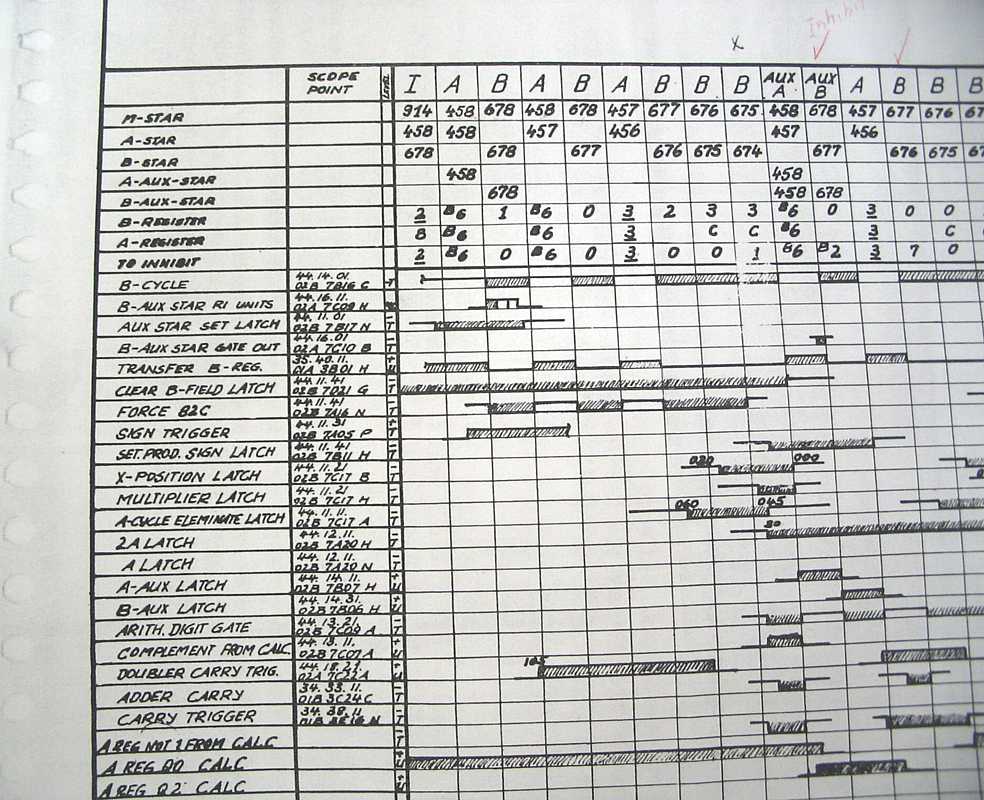 Inhibit
X
SCOPE POINT Level I A B A B A B B B AUX A AUX B A B B B
M-STAR 914 458 678 458 678 457 677 676 675 458 678 457 677 676 67
A-STAR 458 458 457 456 457 456
B-STAR 678 678 677 676 675 674 677 676 675 67
A-AUX-STAR 458 458
B-AUX-STAR 678 458 678
B-REGISTER 2 B6 1 B6 0 3 2 3 3 B6 0 3 0 0
A-REGISTER B B6 B6 3 C C B6 3 C
TO INHIBIT 2 B6 0 B6 0 3 0 0 1 B6 B2 3 7 0
B-CYCLE 44.14.01 02B 7B16 C -T
B-AUX STAR RI UNITS 44.16.11. 02A 7C09 H
AUX STAR SET LATCH 44.11.01 02B 7B17 N -T
B-AUX STAR GATE OUT 44.16.01 02A 7C10 B -T
TRANSFER B-REG. 35.40.11. 01A 3B01 H +U
CLEAR B-FIELD LATCH 44.11.41 02B 7D21 G -T
FORCE B2C 44.11.41 02B 7A16 N -T
SIGN TRIGGER 44.11.31 02B 7A05 P +T
SET. PROD. SIGN LATCH 44.11.41 02B 7B11 H -T
X-POSITION LATCH 44.11.21 02B 7C17 B -T 020 000
MULTIPLIER LATCH 44.11.21 02B 7C17 H -T
A-CYCLE ELEMINATE LATCH 44.11.11. 02B 7C17 A -T 060 045
2A LATCH 44.12.11 02B 7A20 H -T 30
A LATCH 44.12.11. 02B 7A20 N -T
A-AUX LATCH 44.14.11. 02B 7B07 H +U
B-AUX LATCH 44.14.31. 02B 7B06 H +U
ARITH. DIGIT GATE 44.13.21. 02B 7C09 A -T
COMPLEMENT FROM CALC. 44.13.11. 02B 7C07 A +U
DOUBLER CARRY TRIG. 44.18.21. 02A 7C22 A +U 105
ADDER CARRY 34.33.11. 01B 3C24 C -T
CARRY TRIGGER 34.38.11 01B 3E16 N -T
A REG NOT 2 FROM CALC -T
A REG Q0 CALC +U
A REG Q2 CALC +U